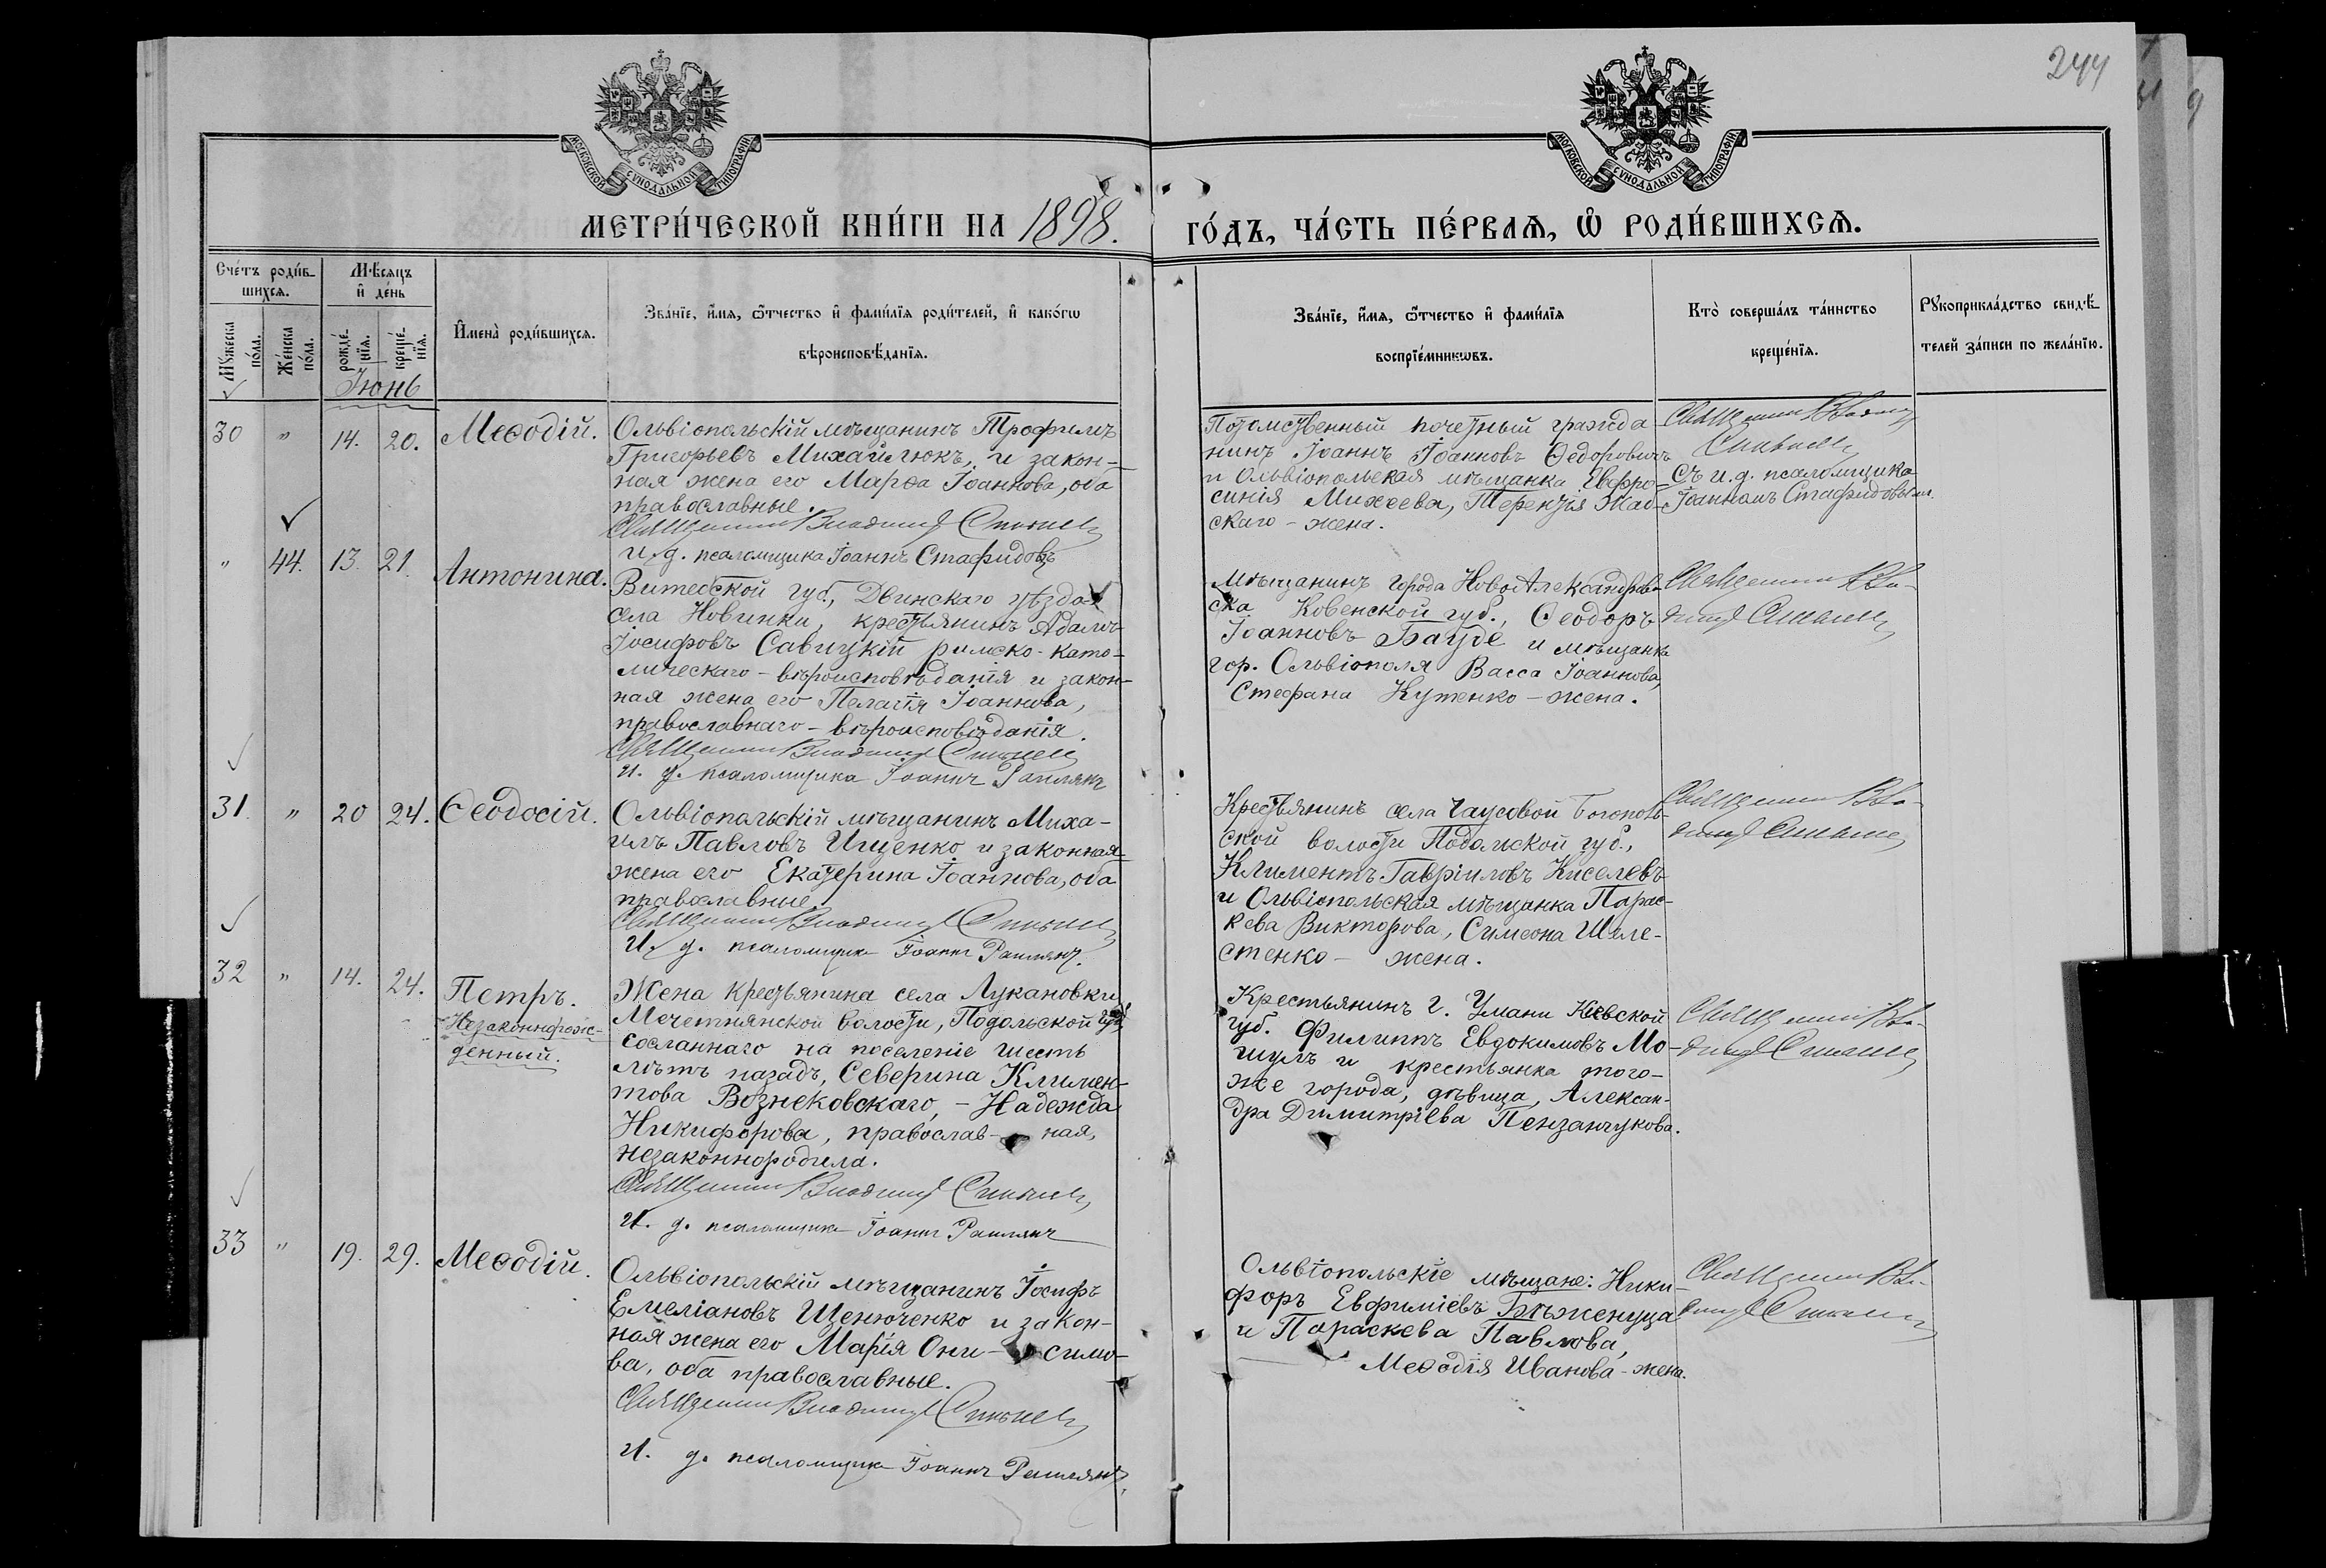 244
МОСКОВСКОЙ СѴНОДАЛЬНОЙ ТИПОГРАФІИ
МОСКОВСКОЙ СѴНОДАЛЬНОЙ ТИПОГРАФІИ
МЕТРИ́ЧЕСКОЙ КНИ́ГИ НА 1898. ГО́ДЪ, ЧА́СТЬ ПЕ́РВАѦ, Ѡ РОДИ́ВШИХСѦ.
Сче́тъ роди́в-
шихсѧ.
Мꙋ́жеска по́ла.
Же́нска по́ла.
Мѣ́сѧцъ
и҆ де́нь
рожде́-
нїѧ.
креще́-
нїѧ.
И҆мена̀ роди́вшихсѧ.
Зва́нїе, и҆́мѧ, ѻ҆́тчество и҆ фами́лїѧ роди́телей, и҆ како́гѡ
вѣроисповѣ́данїѧ.
Зва́нїе, и҆́мѧ, ѻ҆́тчество и҆ фами́лїѧ
воспрїе́мникѡвъ.
Кто̀ соверша́лъ та́инство
креще́нїѧ.
Рꙋкоприкла́дство свидѣ́-
телей за́писи по жела́нїю.
Іюнь
30 " 14. 20. Меѳодій.
Ольвіопольскій мѣщанинъ Трофимъ
Григорьевъ Михайлюкъ, и закон-
ная жена его Марѳа Іоаннова, оба
православные.
Священникъ Владимір
И. д. псаломщика Іоаннъ Стафидовъ
Потомственный почетный гражда
нинъ Іоаннъ Іоанновъ Ѳедоровичъ
и Ольвіопольская мѣщанка Евфро-
синія Михеева, Терентія Жад-
скаго - жена.
Священник Владимір
съ и. д. псаломщика
Іоанномъ Стафидовым.
" 44. 13. 21. Антонина.
Витебской губ., Двинскаго уѣзда
села Новинки, крестьянинъ Адамъ
Іосифовъ Савицкій римско-като-
лическаго - вѣроисповѣданія и закон-
ная жена его Пелагія Іоаннова,
православнаго - вѣроисповѣданія.
Священник Владимір
И. д. псаломщика Іоаннъ
Мѣщанинъ города НовоАлександров-
ска Ковенской губ., Ѳеодоръ
Іоанновъ Бауде и мѣщанка
гор. Ольвіополя Васса Іоаннова,
Стефана Кутенко - жена.
Священник Вла-
димір
31. " 20 24. Ѳеодосій.
Ольвіопольскій мѣщанинъ Миха-
илъ Павловъ Ищенко и законная
жена его Екатерина Іоаннова, оба
православные.
Священник Владимір
И. д. псаломщика Іоаннъ
Крестьянинъ села Чаусовой Богополь-
ской волости Подольской губ.,
Климентъ Гавріиловъ Киселевъ
и Ольвіопольская мѣщанка Парас-
кева Викторова, Симеона Шеле-
стенко - жена.
Священник Вла-
димір
32 " 14. 24. Петръ.
Незаконнорож-
денный.
Жена крестьянина села Лукановки
Мечетнянской волости, Подольской губ.
сосланнаго на поселеніе шесть
лѣтъ назадъ, Северина Климен-
това Вознековскаго, - Надежда
Никифорова, православ- ная,
незаконнородила.
Священник Владимір
И. д. псаломщика Іоаннъ
Крестьянинъ г. Умани Кіевской
губ. Филиппъ Евдокимовъ Мо-
шулъ и крестьянка того-
же города, дѣвица, Алексан-
дра Димитріева Пензанчукова.
Священник Вла-
димір
33 " 19. 29. Меѳодій.
Ольвіопольскій мѣщанинъ Іосифъ
Емеліановъ Щенюченко и закон-
ная жена его Марія Они- симо-
ва, оба православные.
Священник Владимір
И. д. псаломщика Іоаннъ
Ольвіопольскіе мѣщане: Ники-
форъ Евфиміевъ Бѣженуца
и Параскева Павлова,
Меѳодія Иванова - жена.
Священник Вла-
димір